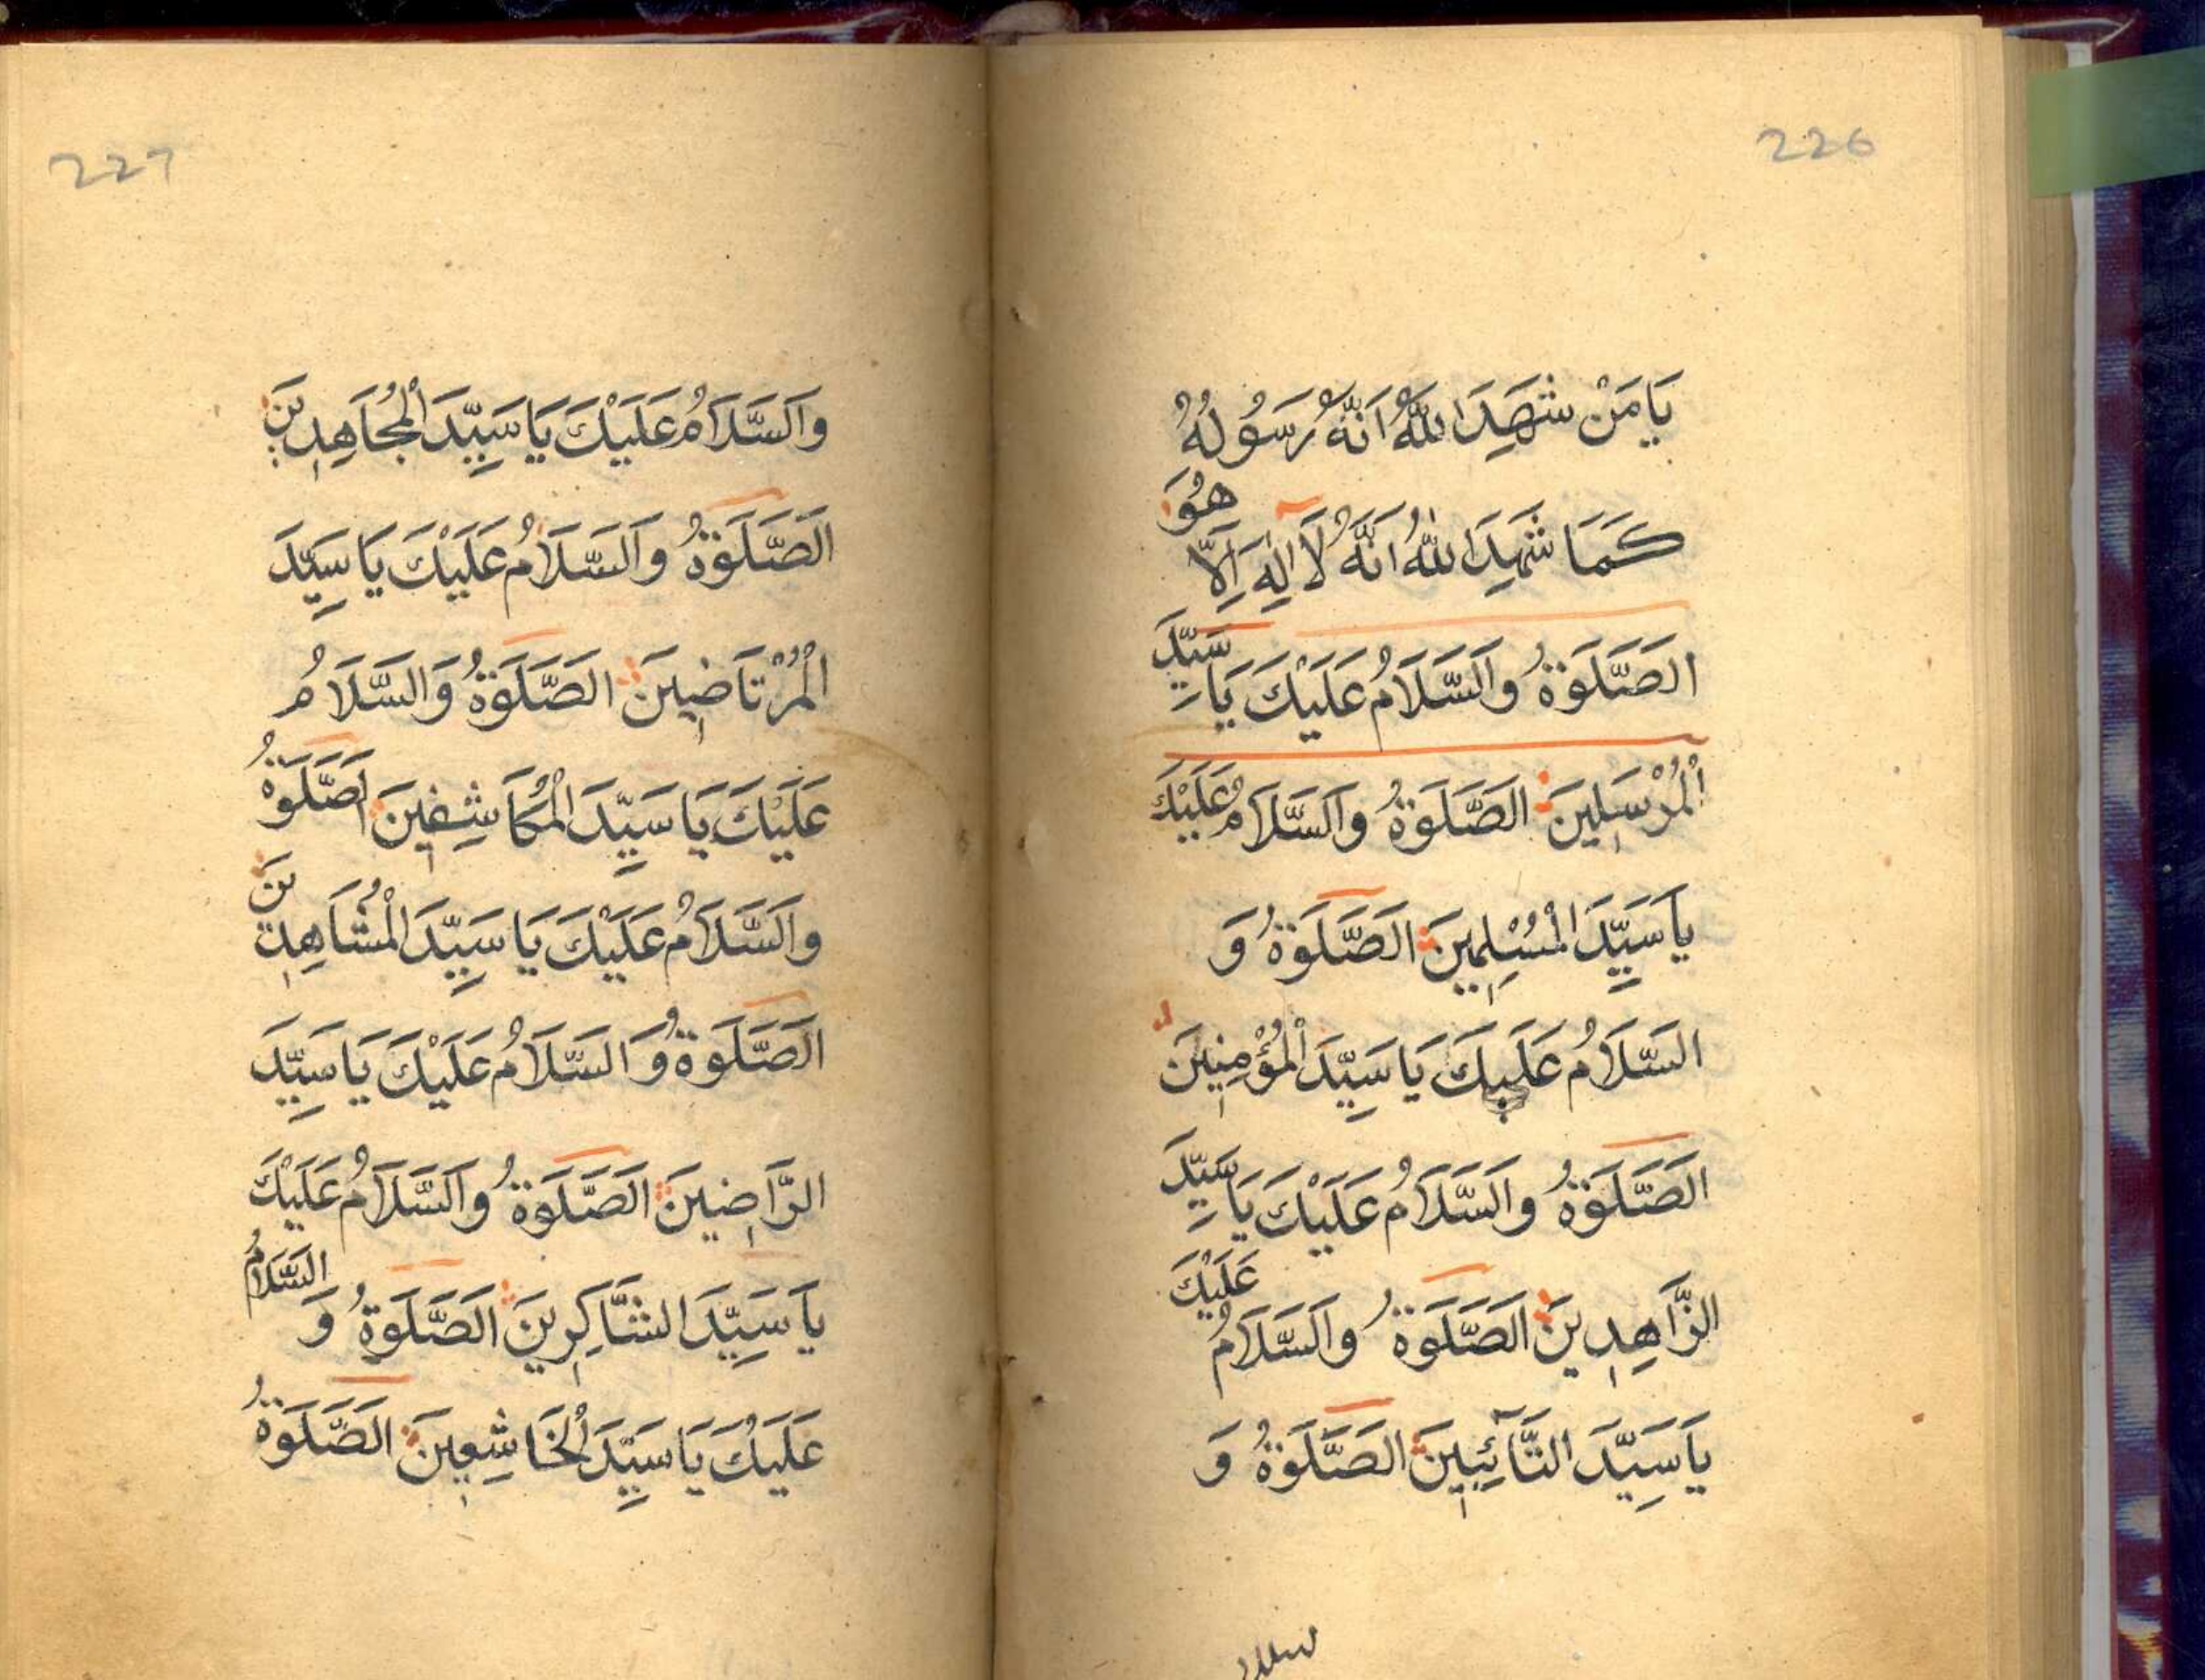 226
يَا مَنْ شَهِدَ اللهُ اَنَّهُ رَسُولُهُ
كَمَا شَهِدَ اللهُ اَنَّهُ لَا اِلٰهَ اِلَّا هُوَ
الصَّلَوةُ وَالسَّلَامُ عَلَيْكَ يَا سَيِّدَ
الْمُرْسَلِينَ الصَّلَوةُ وَالسَّلَامُ عَلَيْكَ
يَا سَيِّدَ الْمُسْلِمِينَ الصَّلَوةُ وَ
السَّلَامُ عَلَيكَ يَا سَيِّدَ الْمُؤْمِنِينَ
الصَّلَوةُ وَالسَّلَامُ عَلَيْكَ يَا سَيِّدَ
الزَّاهِدِينَ الصَّلَوةُ وَالسَّلَامُ عَلَيْكَ
يَا سَيِّدَ التَّآئِبِينَ الصَّلَوةُ وَ
227
وَالسَّلَامُ عَلَيْكَ يَا سَيِّدَ الْمُجَاهِدِينَ
الصَّلَوةُ وَالسَّلَامُ عَلَيْكَ يَا سَيِّدَ
الْمُرْتَاضِينَ الصَّلَوةُ وَالسَّلَامُ
عَلَيْكَ يَا سَيِّدَ الْمُكَاشِفِينَ الصَّلَوةُ
وَالسَّلَامُ عَلَيْكَ يَا سَيِّدَ الْمُشَاهِدِينَ
الصَّلَوةُ وَالسَّلَامُ عَلَيْكَ يَا سَيِّدَ
الرَّاضِينَ الصَّلَوةُ وَالسَّلَامُ عَلَيْكَ
يَا سَيِّدَ الشَّاكِرِينَ الصَّلَوةُ وَ السَّلَامُ
عَلَيْكَ يَا سَيِّدَ الْخَاشِعِينَ الصَّلَوةُ